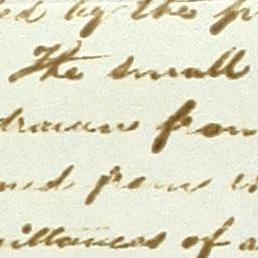 ed by the
The small
drawn from
ned from
ittances of a